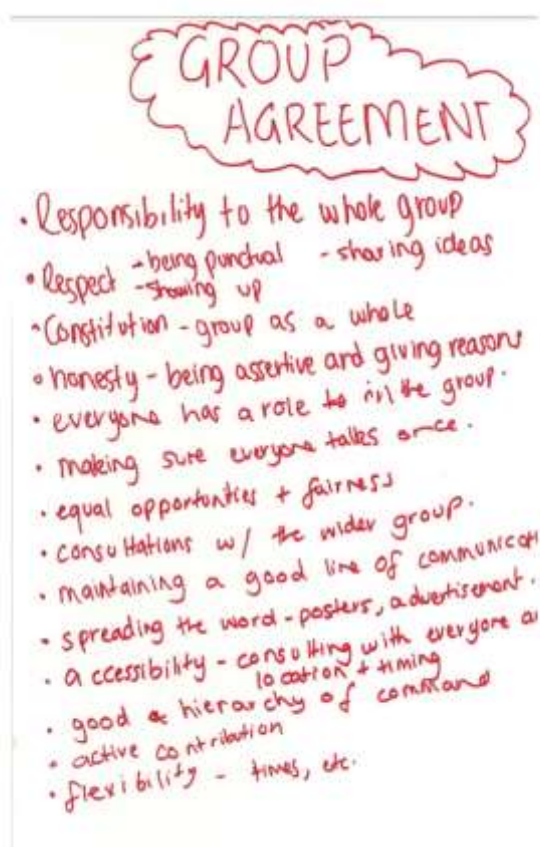 GROUP
AGREEMENT
• Responsibility to the whole group
• Respect - being punctual - sharing ideas
- showing up
• Constitution - group as a whole
• honesty - being assertive and giving reasons
• everyone has a role in the group.
• making sure everyone talks once.
• equal opportunties + fairness
• consultations w/ the wider group.
• maintaining a good line of communicati
• spreading the word - posters, advertisement.
• accessibility - consulting with everyone a
location + timing
• good hierarchy of command
• active contribution
• flexibility - times, etc.